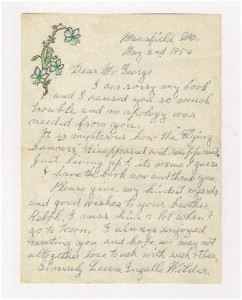 Mansfield, Mo.
May 2nd 1954
Dear Mr. George
I am sorry my book
and I caused you so much
trouble and no apology was
needed from you.
It is mysterious how the "Flying
Saucers" disappeared and reappeared
Just living up to its name I guess
I have the book now and thank you.
Please give my kindest regards
and good wishes to your brother
Ralph. I miss him a lot when I
go to town. I always enjoyed
meeting you and hope we may not
altogether lose touch with each other.
Sincerely Laura Ingalls Wilder.